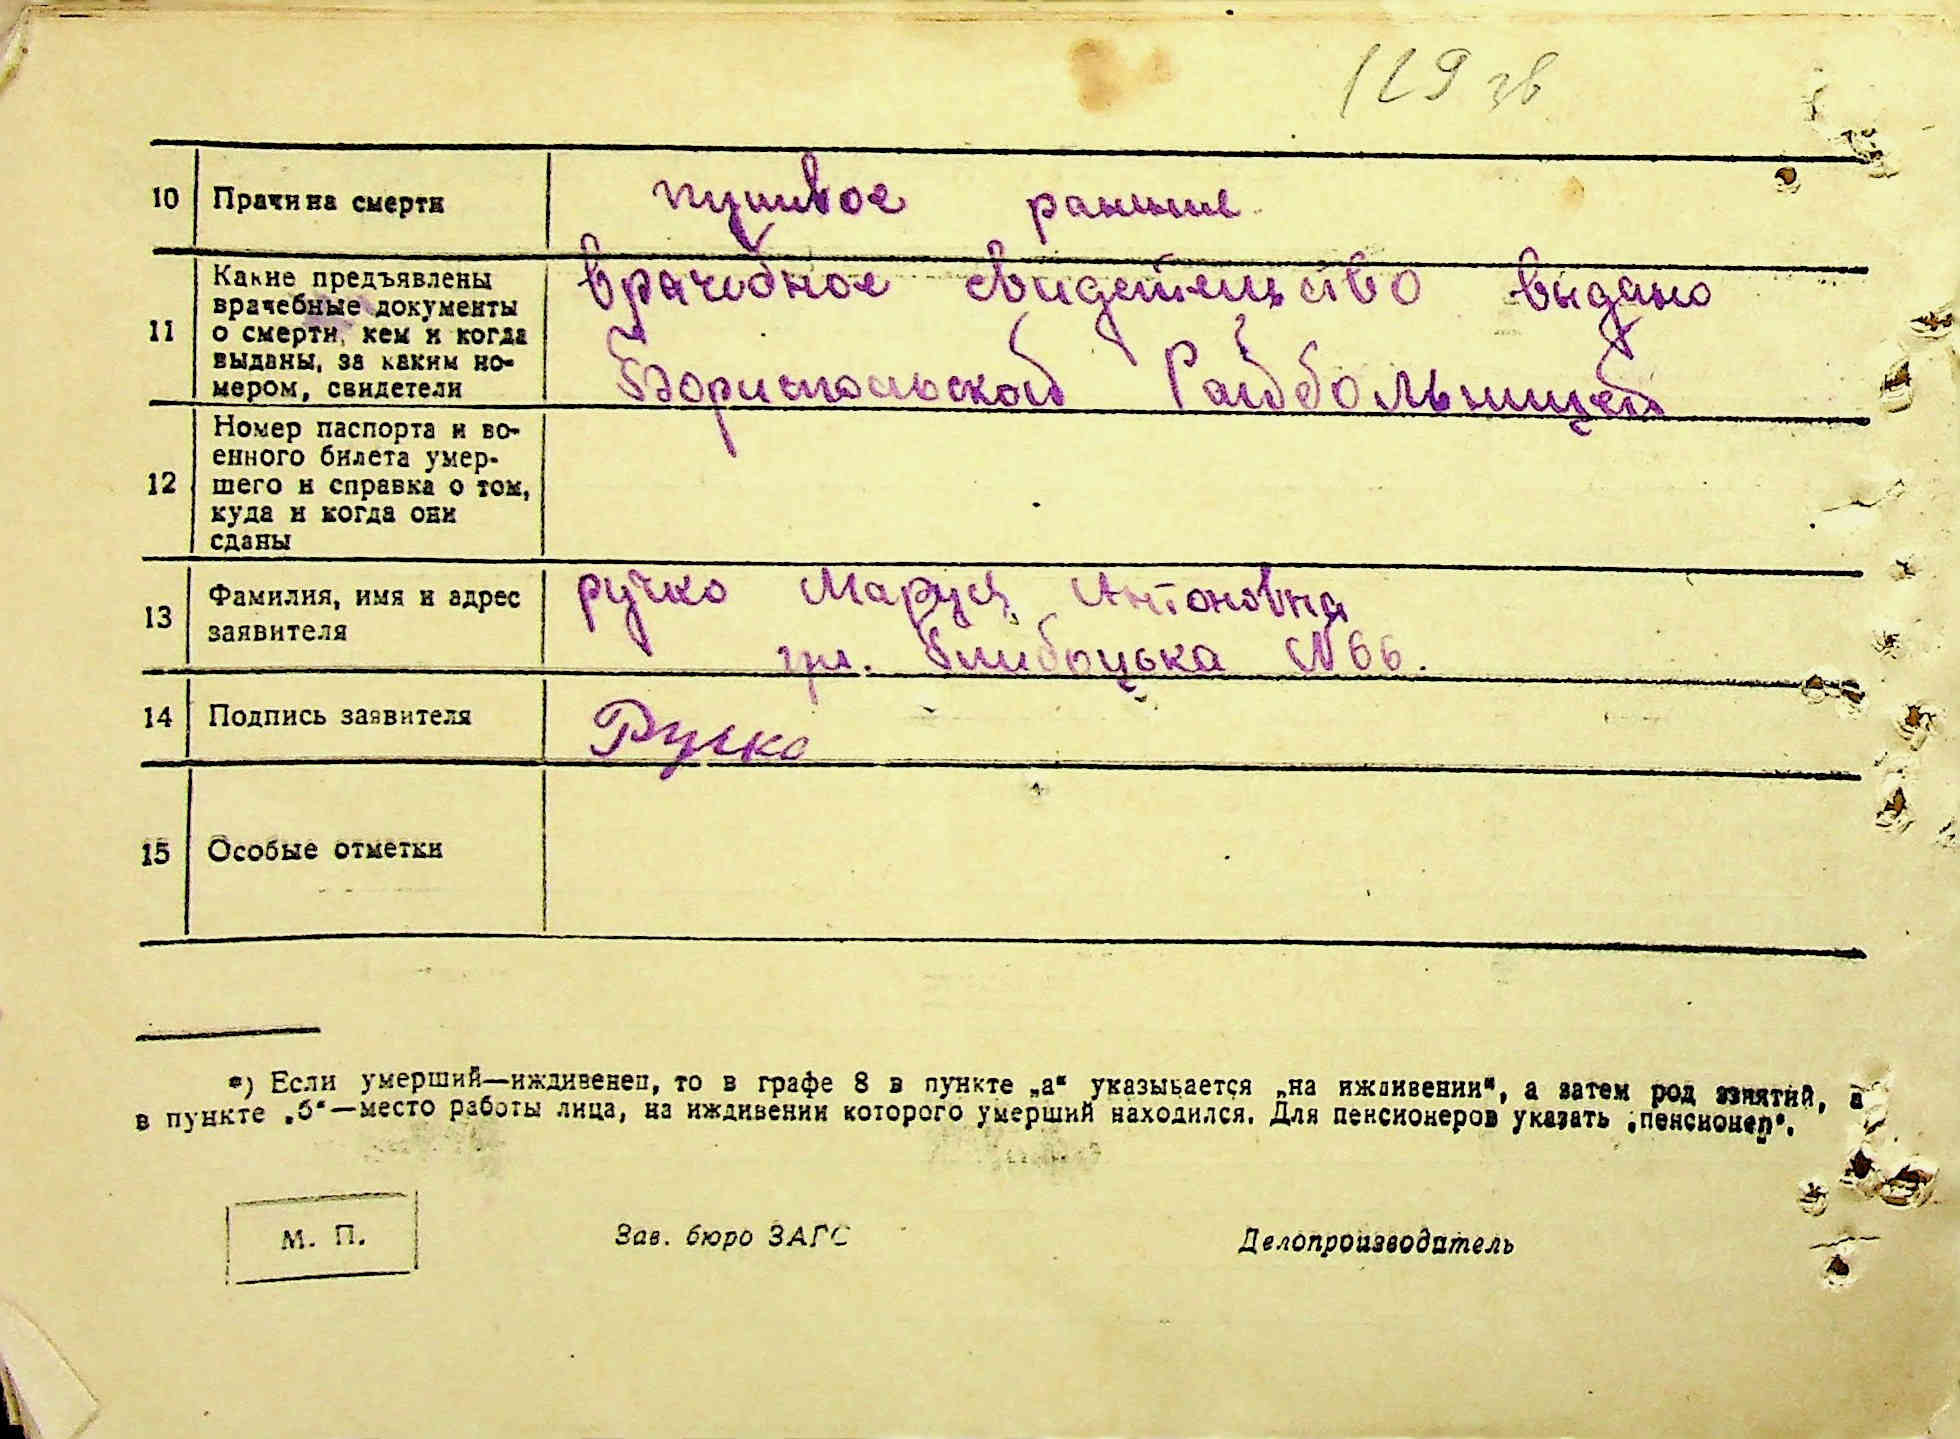 129 зв
10 Причина смерти
пулевое ранение
11 Какие предъявлены
врачебные документы
о смерти, кем и когда
выданы, за каким но-
мером, свидетели
врачебное свидетельство выдано
Бориспольской Райбольницей
12 Номер паспорта и во-
енного билета умер-
шего и справка о том,
куда и когда они
сданы
13 Фамилия, имя и адрес
заявителя
ручко Маруся Антоновна
Глибоцька №66.
14 Подпись заявителя
Ручко
15 Особые отметки
*) Если умерший—иждивенец, то в графе 8 в пункте „а“ указывается „на иждивении“, а затем род занятий, а
в пункте „б“—место работы лица, на иждивении которого умерший находился. Для пенсионеров указать „пенсионер“.
М. П.
Зав. бюро ЗАГС
Делопроизводитель